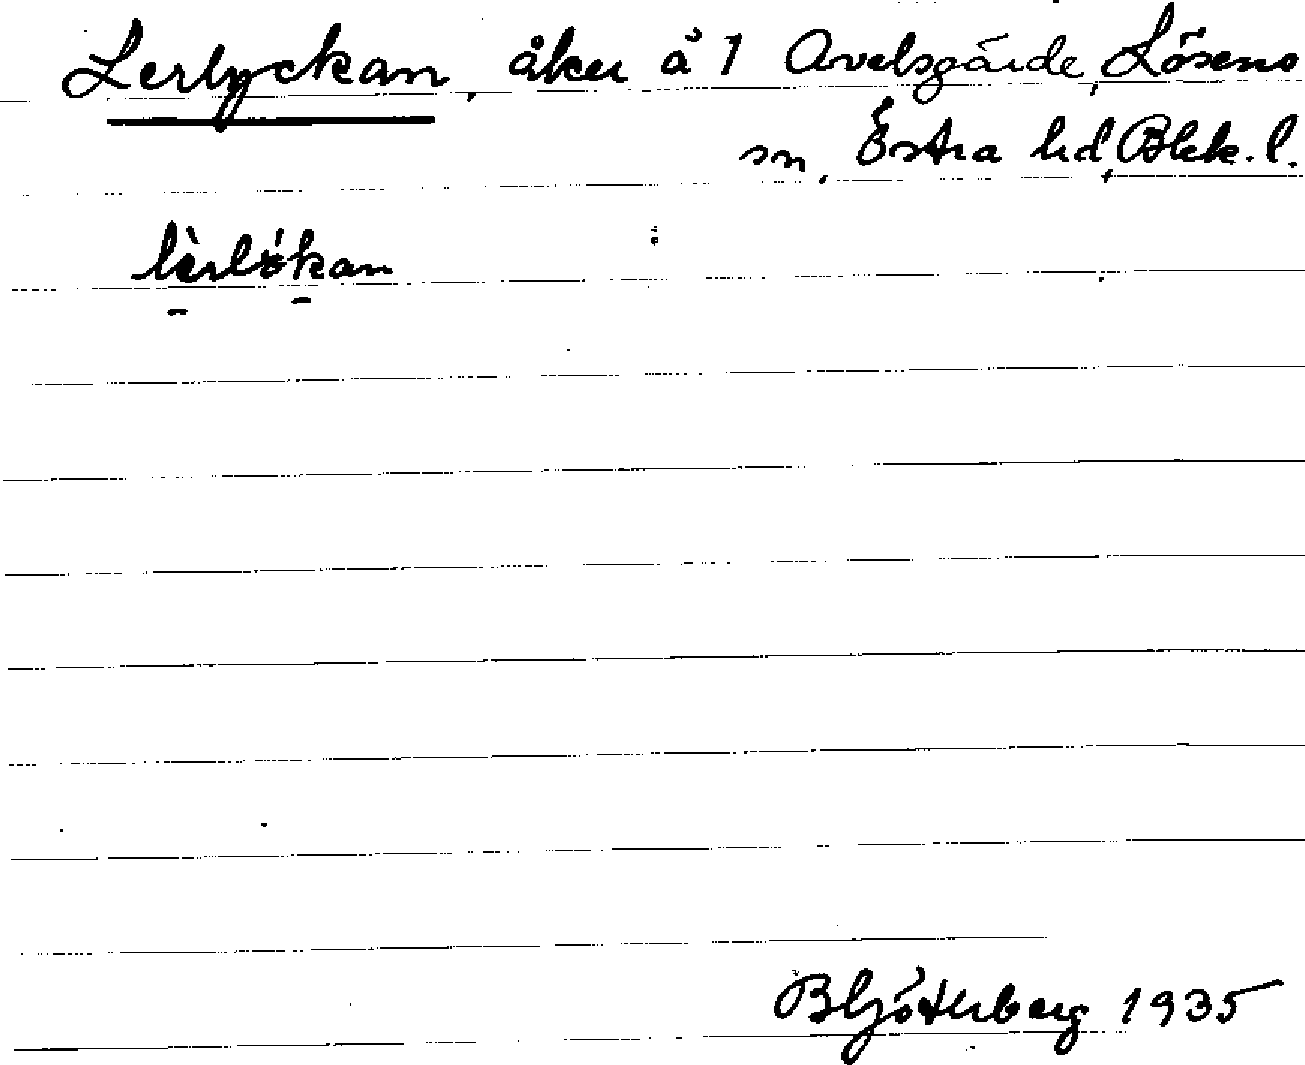 Lerlyckan, åker å 1 Avelsgärde, Lösens
sn, Östra hd, Blek. l.
lèrlökan
1935